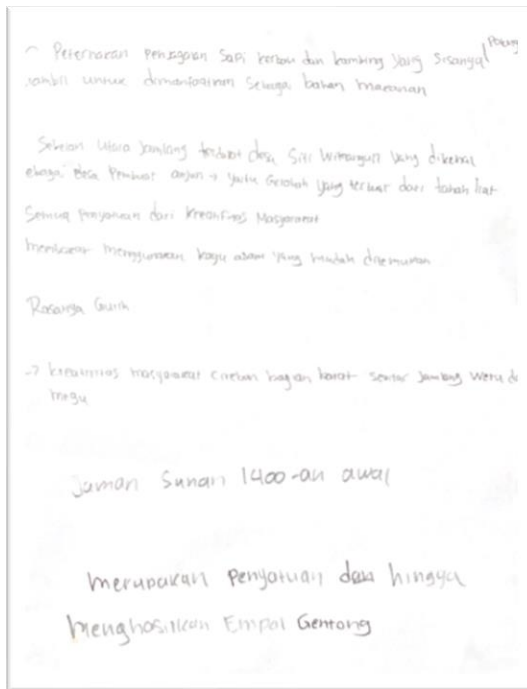 Peternakan penjagaan Sapi kerbau dan kambing yang sisanya
untuk dimanfaatkan sebagai bahan makanan
Sebelah Utara Jamblang terdapat desa Siti Winangun yang dikenal
desa Pembuat → yaitu Gerabah yang terbuat dari tanah liat
Semua penyajian dari kreatifitas Masyarakat
membakar menggunakan kayu asam yang mudah ditemukan
Rasanya Gurih
→ kreativitas masyarakat cirebon bagian barat sekitar Jamblang Weru dan
megu
Jaman Sunan 1400-an awal
Merupakan penyatuan hingga
Menghasilkan Empal Gentong